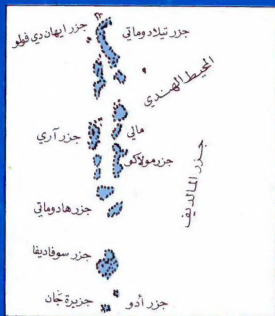 جزر تيلادوماتي
جزر ايهان دي فولو
المحيط الهندي
مالي
جزر آري
جزر مولاكو
جزر المالديف
جزر هادوماتي
جزر سوفاديفا
جزر أدو
جزيرة جان